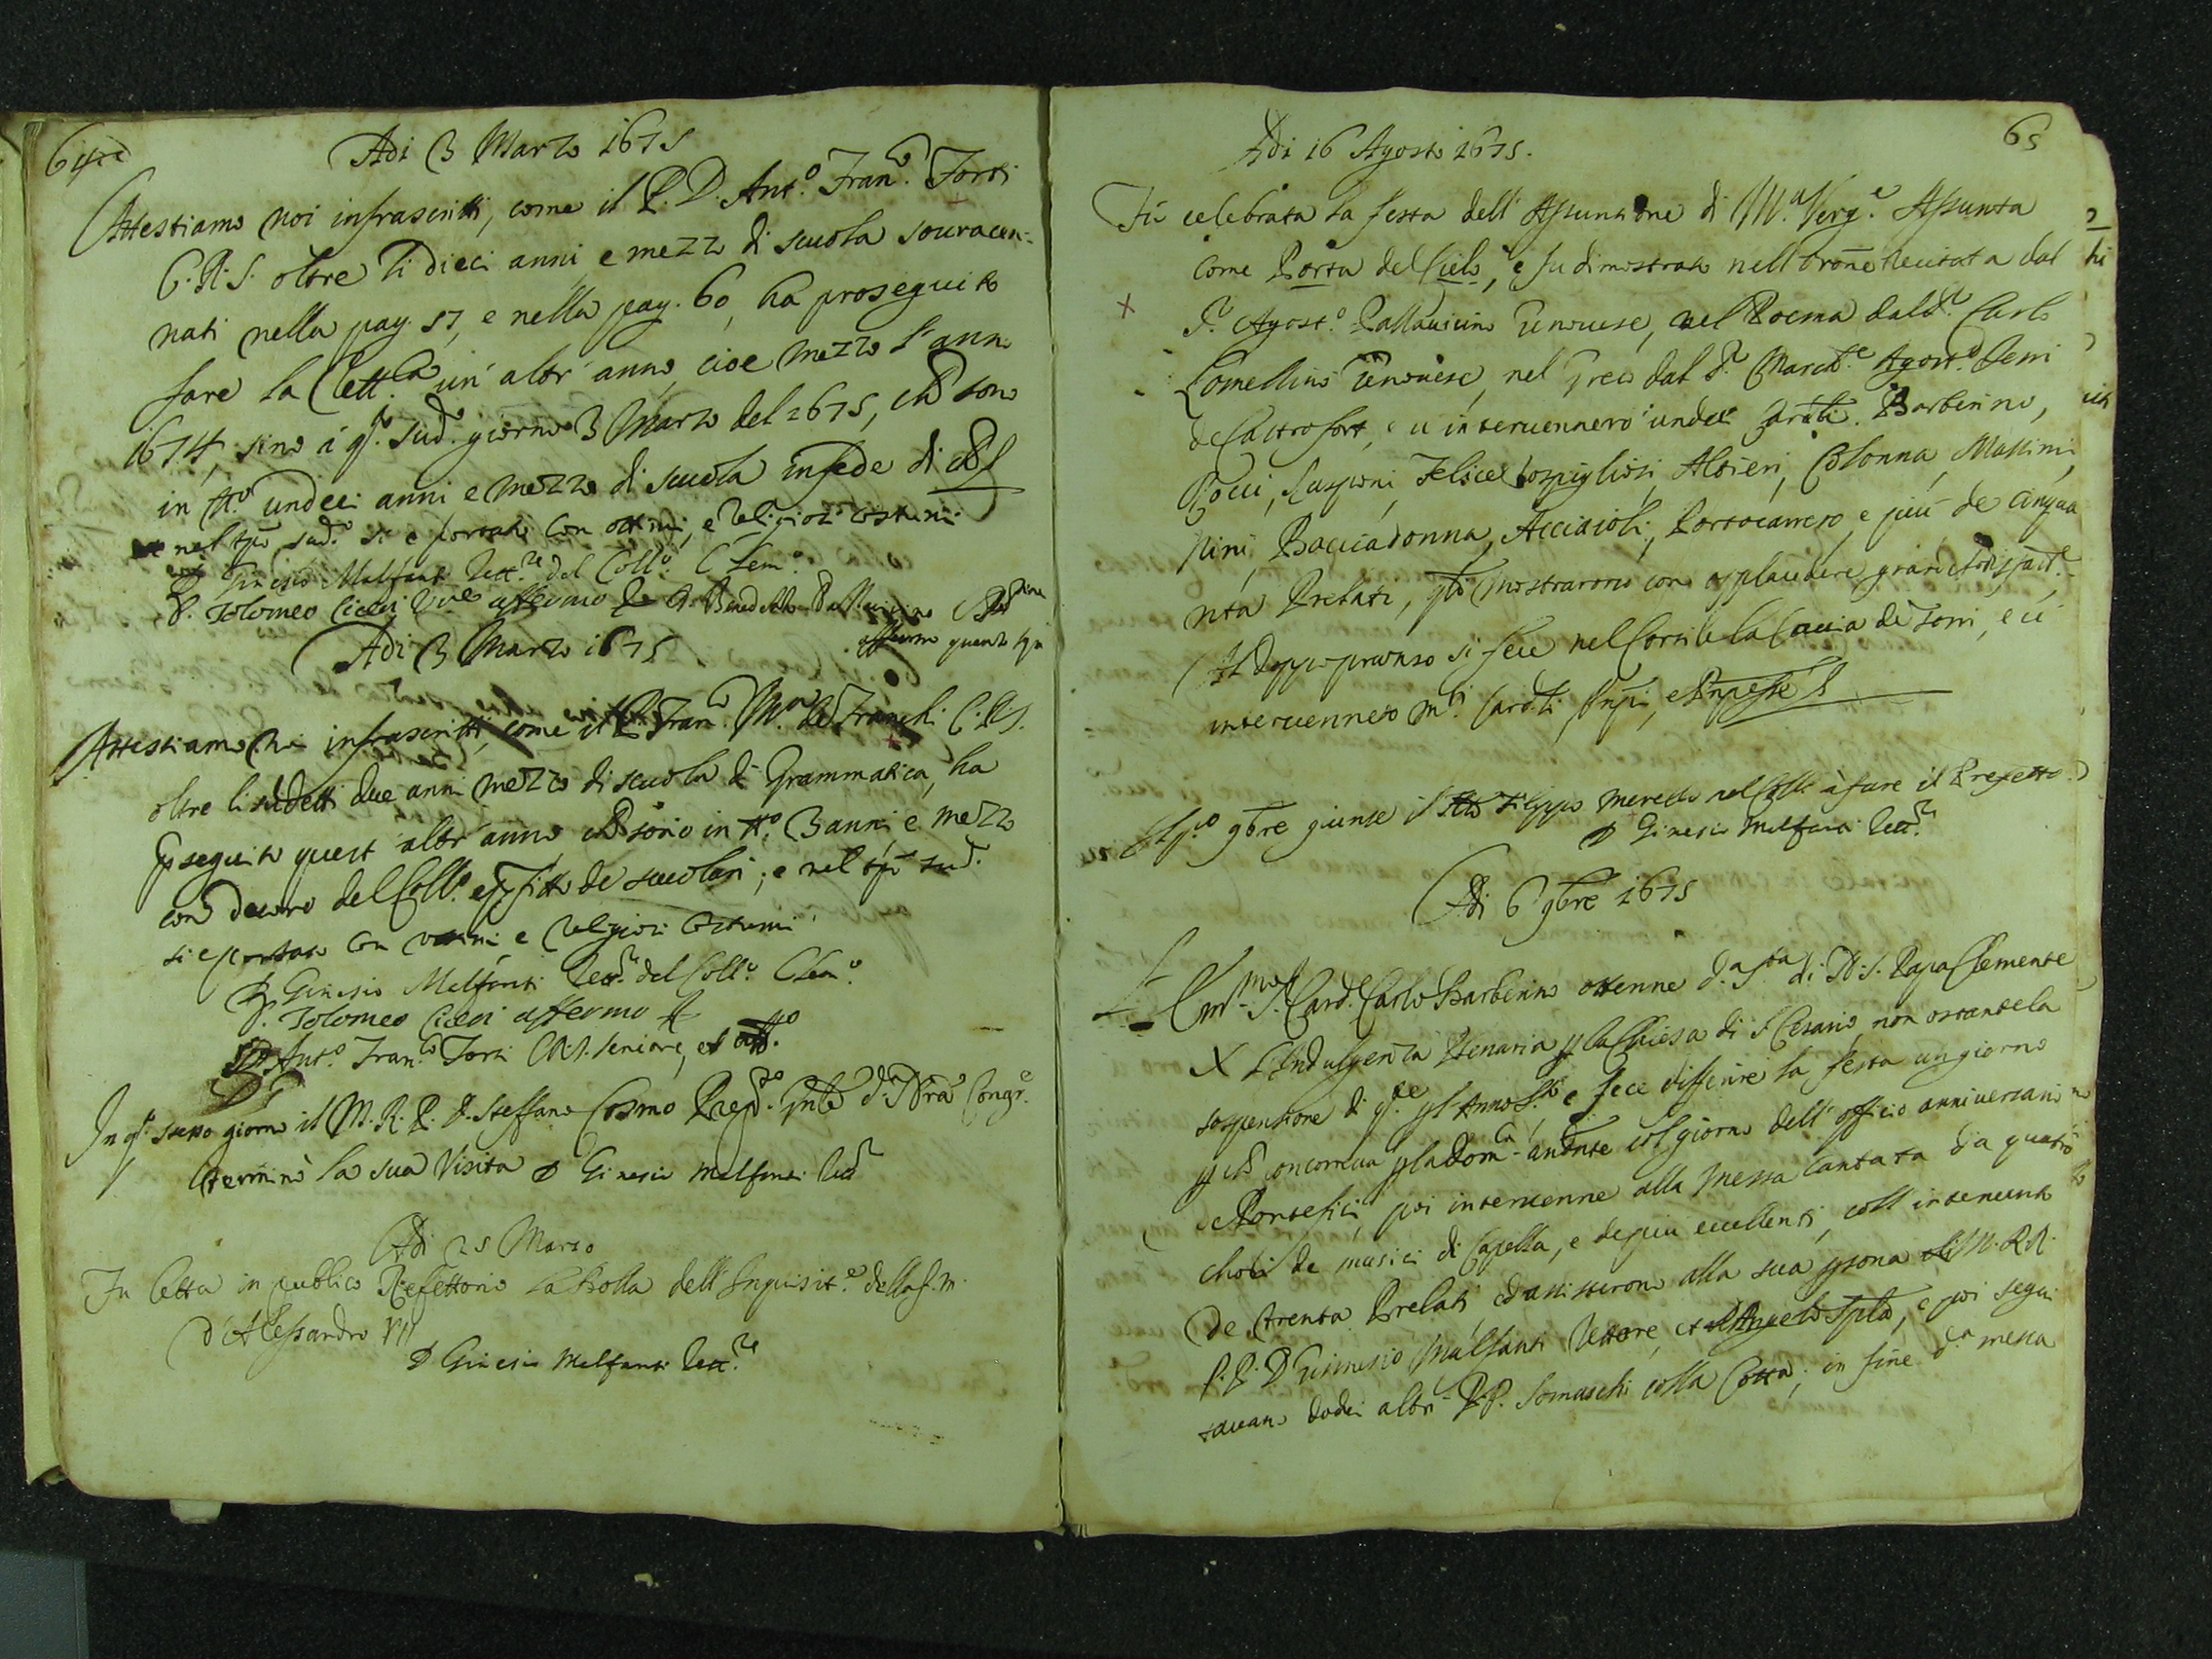 64
Adi 3 Marzo 1675
Attestiamo noi infrascritti, come il P. D. Ant.o Fran.co Forti
C.R.S. oltre li dieci anni, e mezzo di scuola souracen-
nati nella pag. 57, e nella pag. 60, ha proseguito
fare la un' altr' anno, cioè mezzo l'anno
1674, sino à q.o sud.o giorno 3 Marzo del 1675, che sono
in tt.o undeci anni e mezzo di scuola in fede di che
nel tpo sud.o si è portato con ottimi, e religiosi costumi
D. Ginesio Malfanti Rett.re del Coll.o Clem.o
D. Tolomeo affermo D. Benedetto Pallavicino
affermo quanto
Adi 3 Marzo 1675
Attestiamo noi infrascritti, come il P. Fran.co M.a de Franchi C.R.S.
oltre li sudetti due anni mezzo di scuola di Grammatica, ha
proseguito quest' altr' anno che sono in tt.o 3 anni e mezzo
con decoro del Coll.o e profitto de scuolari; e nel tpo sud.o
si è portato con ottimi e religiosi costumi
D. Ginesio Malfanti Rett.re del Coll.o Clem.o
D. Tolomeo affermo
D. Ant.o Fran.co Forti C.R.S. seniore, et att.o
In q.o stesso giorno il M.R.P. D. Steffano Cosmo Prep.o Gnle d. Nra Congr.e
terminò la sua Visita D Ginesio Malfanti Rett.re
Adi 25 Marzo
Fu letta in publico Refettorio la Bolla dell' Inquisit.e della f. m.
d'Alessandro VII
D Ginesio Malfanti Rett.re
65
Adi 16 Agosto 1675.
Fù celebrata la festa dell' Assuntione di M.a Verg.e Assunta
come Porta del Cielo, e fu dimostrato nell' Orone recitata dal
S.r Agost.o Pallauicino Genouese, nel Poema dal S.r Carlo
Lomellino Genouese, nel Greco dal S.r March.e Agost.o
de Castrofort, e u' interuennero undeci Card.li Barberino,
Felice Rospigliosi, Altieri, Colonna, Massimi,
Acciaioli, Portocarrero, e più de cinqua
nta Prelati, q.li mostrarono con applaudere grande sodisfact.e
Il doppo pranzo si fece nel Cortile la Caccia de Tori, e ui
interuennero m.ti Card.li Pnpi, e Pnpesse
9bre giunse il Filippo Merello nel Coll.o à fare il Prefetto.
D Ginesio Malfanti Rett.re
Adi 6 9bre 1675
L' Em.mo S. Card.l Carlo Barberino ottenne d.a S.ta di N.S. Papa Clemente
X l'Indulgenza Plenaria p la Chiesa di S. Cesario non ostante la
sospensione di q.lle pl' Anno S.to, e fece differire la festa un giorno
p che concorreua p la Dom.ca col giorno dell' officio anniuersario
Pontefici, poi interuenne alla messa cantata da quatro
chori de musici di Capella, e de più eccellenti, coll' interuento
de trenta Prelati, ed assisterono alla sua psona li M.RR.
P.P. D Ginesio Malfanti Rettore, et Angelo Spla, e poi segui
tauano dodici altri P.P. Somaschi colla Cotta; in fine d.a messa